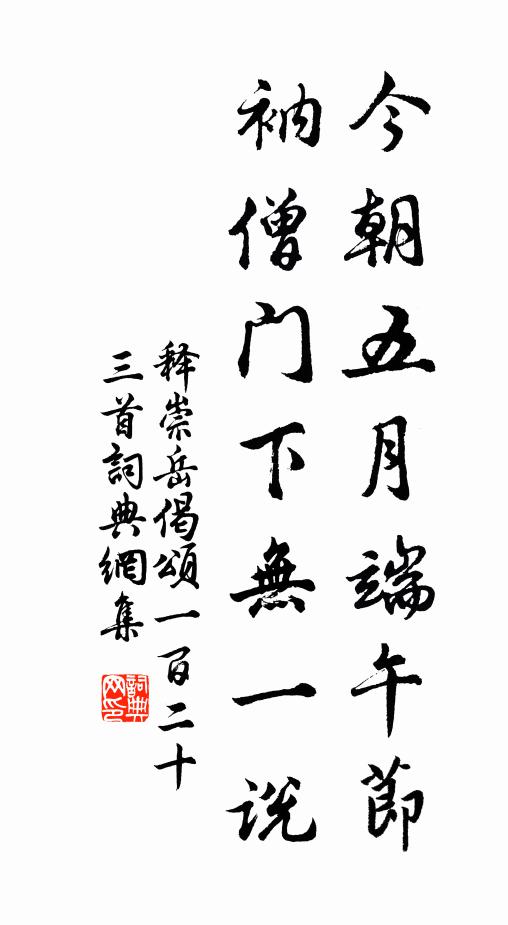 今朝五月端午節
衲僧門下無一説
释崇岳偈頌一百二十
三首詞典網集
詞典网印